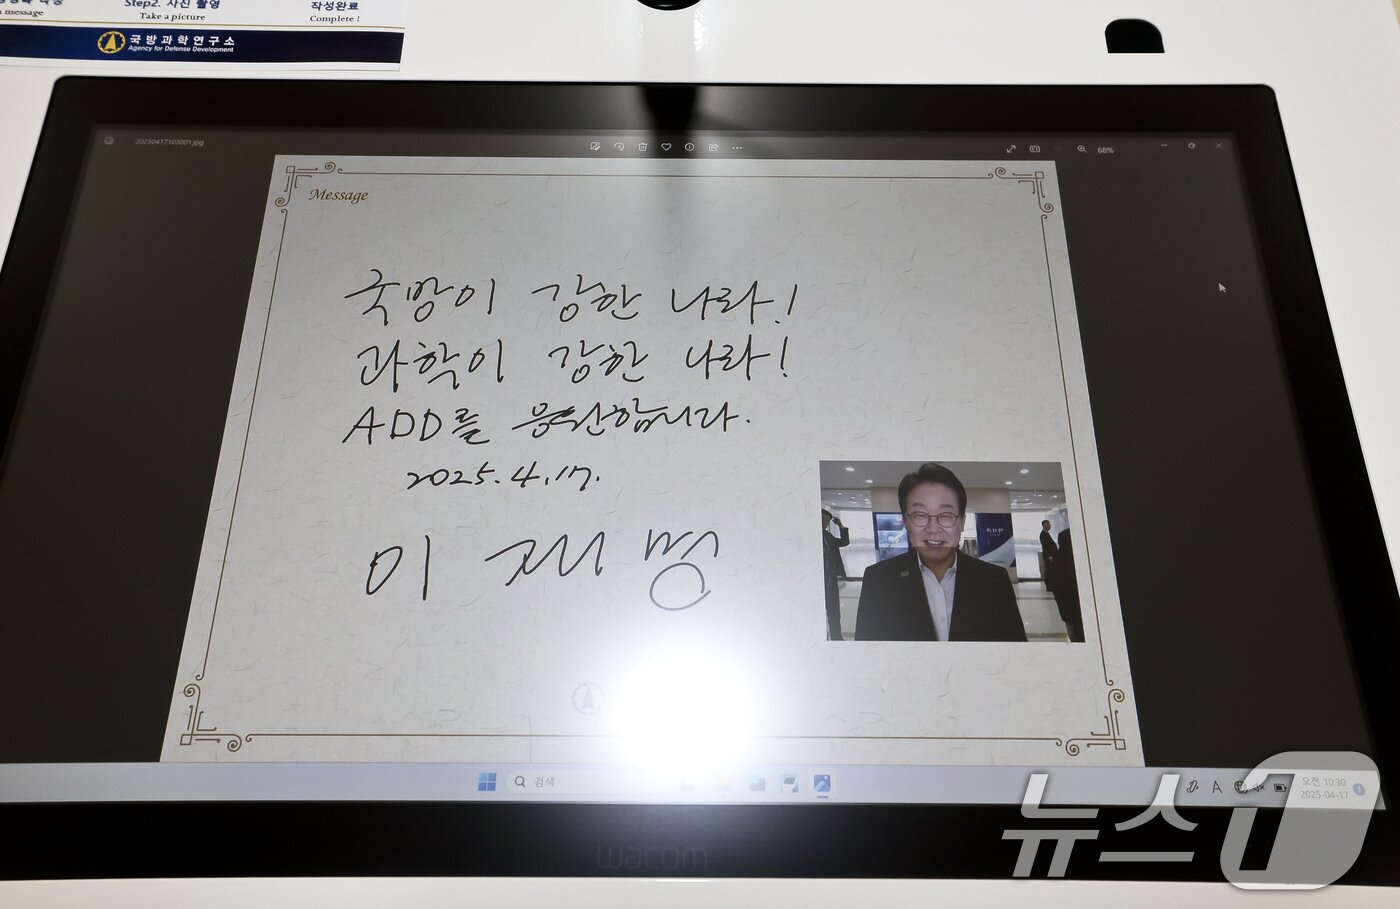 message
Step2. 사진 촬영
Take a picture
작성완료
Complete !
국방과학연구소
Agency for Defense Development
20250417103001.jpg
68%
Message
국방이 강한 나라!
과학이 강한 나라!
ADD를 응원합니다.
2025.4.17.
이재명
검색
A
오전 10:30
2025-04-17
wacom
뉴스1